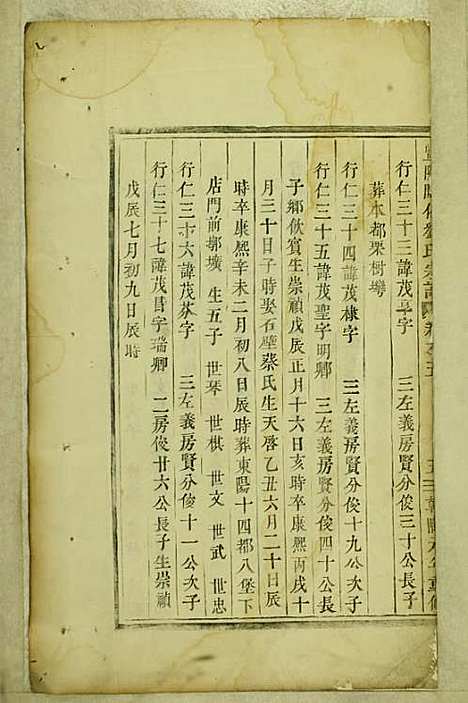 行仁三十三諱茂孚字 三左義房賢分俊三十公長子
葬本都栗樹灣
行仁三十四諱茂棣字 三左義房賢分俊十九公次子
行仁三十五諱茂聖字明卿 三左義房賢分俊四十公長
子鄉飲賓生崇禎戊辰正月十六日亥時卒康熙丙戌十
月三十日子時娶石壁蔡氏生天啓乙丑六月二十日辰
時卒康熙辛未二月初八日辰時葬東陽十四都八堡下
店門前墎壙 生五子 世琴 世棋 世文 世武 世忠
行仁三十六諱茂芥字 三左義房賢分俊十一公次子
行仁三十七諱茂昌字瑞卿 二房俊廿六公長子生崇禎
戊辰七月初九日辰時